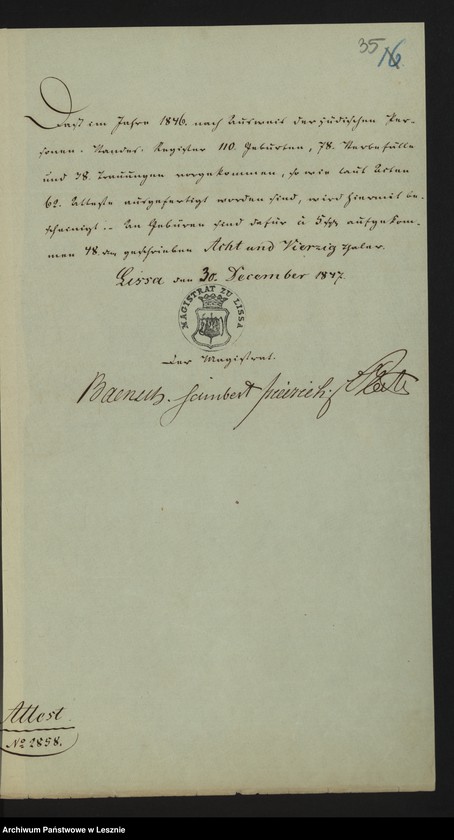 35 16
Daß im Jahre 1846. nach Ausweis der jüdischen Per-
sonen-Standes-Register 110 Geburten, 78. Sterbefälle
und 28. Trauungen vorgekommen, so wie laut Acten
62. Atteste ausgefertigt worden sind, wird hiermit be-
scheinigt. An Gebüren sind dafür à 5 sgr. aufgekom-
men 48. geschrieben Acht und Vierzig Thaler.
Lissa den 30. December 1847.
MAGISTRAT ZU LISSA
Der Magistrat.
Attest
No 2858.
Archiwum Państwowe w Lesznie